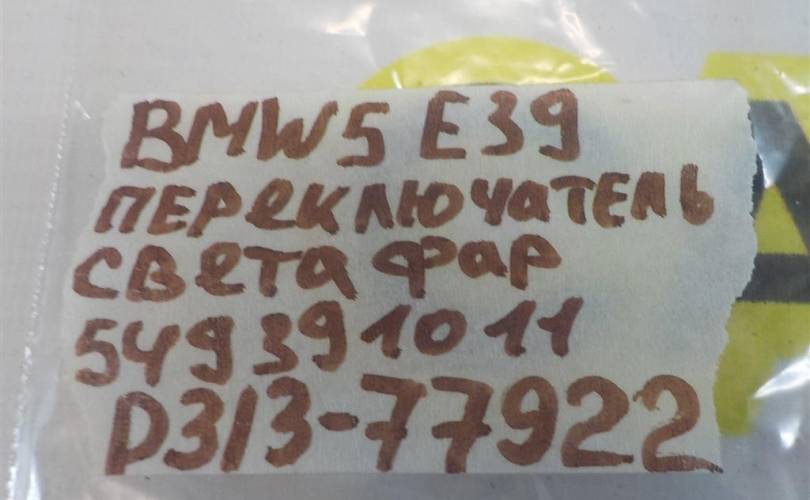 BMW5 E39
ПЕРеКЛЮЧаТЕЛЬ
СВеТа Фар
549391011
D313-77922